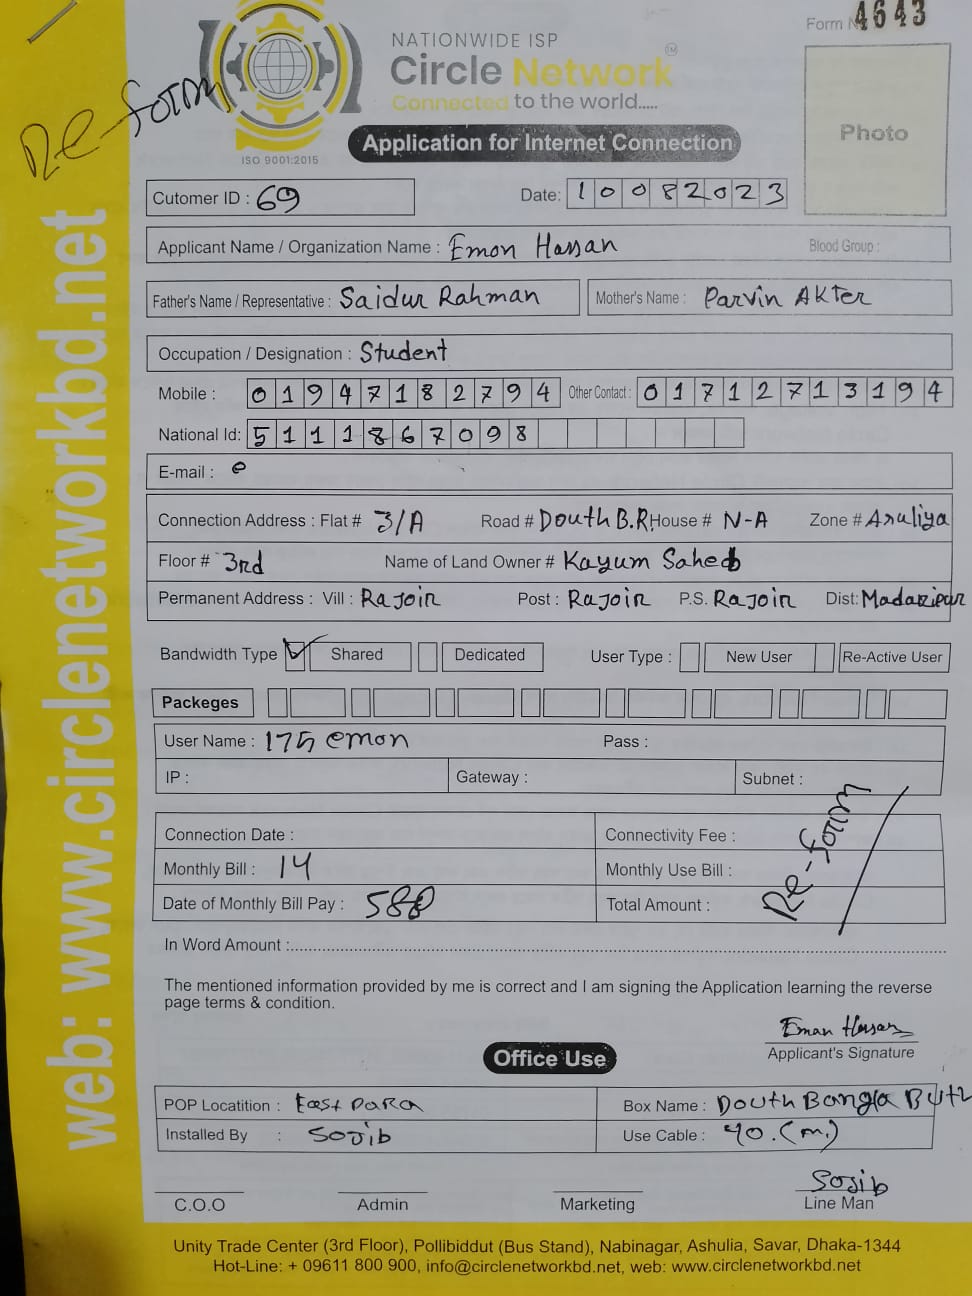 Form N 4643
NATIONWIDE ISP
Circle Network
Connected to the world.....
Re-form
ISO 9001:2015
Application for Internet Connection
Photo
Cutomer ID : 69
Date: 10082023
Applicant Name / Organization Name : Emon Hassan Blood Group :
Father's Name / Representative : Saidur Rahman Mother's Name : Parvin AKter
Occupation / Designation : Student
Mobile : 01947182794 Other Contact : 01712713194
National Id: 5111867098
E-mail : e
Connection Address : Flat # 3/A Road # Douth B.R House # N-A Zone # Asuliya
Floor # 3rd Name of Land Owner # Kayum Saheb
Permanent Address : Vill : RaJoir Post : RaJoir P.S. RaJoir Dist: Madaripur
Bandwidth Type Shared Dedicated User Type : New User Re-Active User
Packeges
User Name : 175 emon Pass :
IP : Gateway : Subnet :
Connection Date : Connectivity Fee :
Monthly Bill : 14 Monthly Use Bill :
Date of Monthly Bill Pay : 588 Total Amount :
Re-form
In Word Amount :
The mentioned information provided by me is correct and I am signing the Application learning the reverse
page terms & condition.
Eman Hasan
Applicant's Signature
Office Use
POP Locatition : East PaRa Box Name : Douth Bangla Buth
Installed By : Sojib Use Cable : 40.(m)
Sojib
C.O.O Admin Marketing Line Man
Unity Trade Center (3rd Floor), Pollibiddut (Bus Stand), Nabinagar, Ashulia, Savar, Dhaka-1344
Hot-Line: + 09611 800 900, info@circlenetworkbd.net, web: www.circlenetworkbd.net
web: www.circlenetworkbd.net